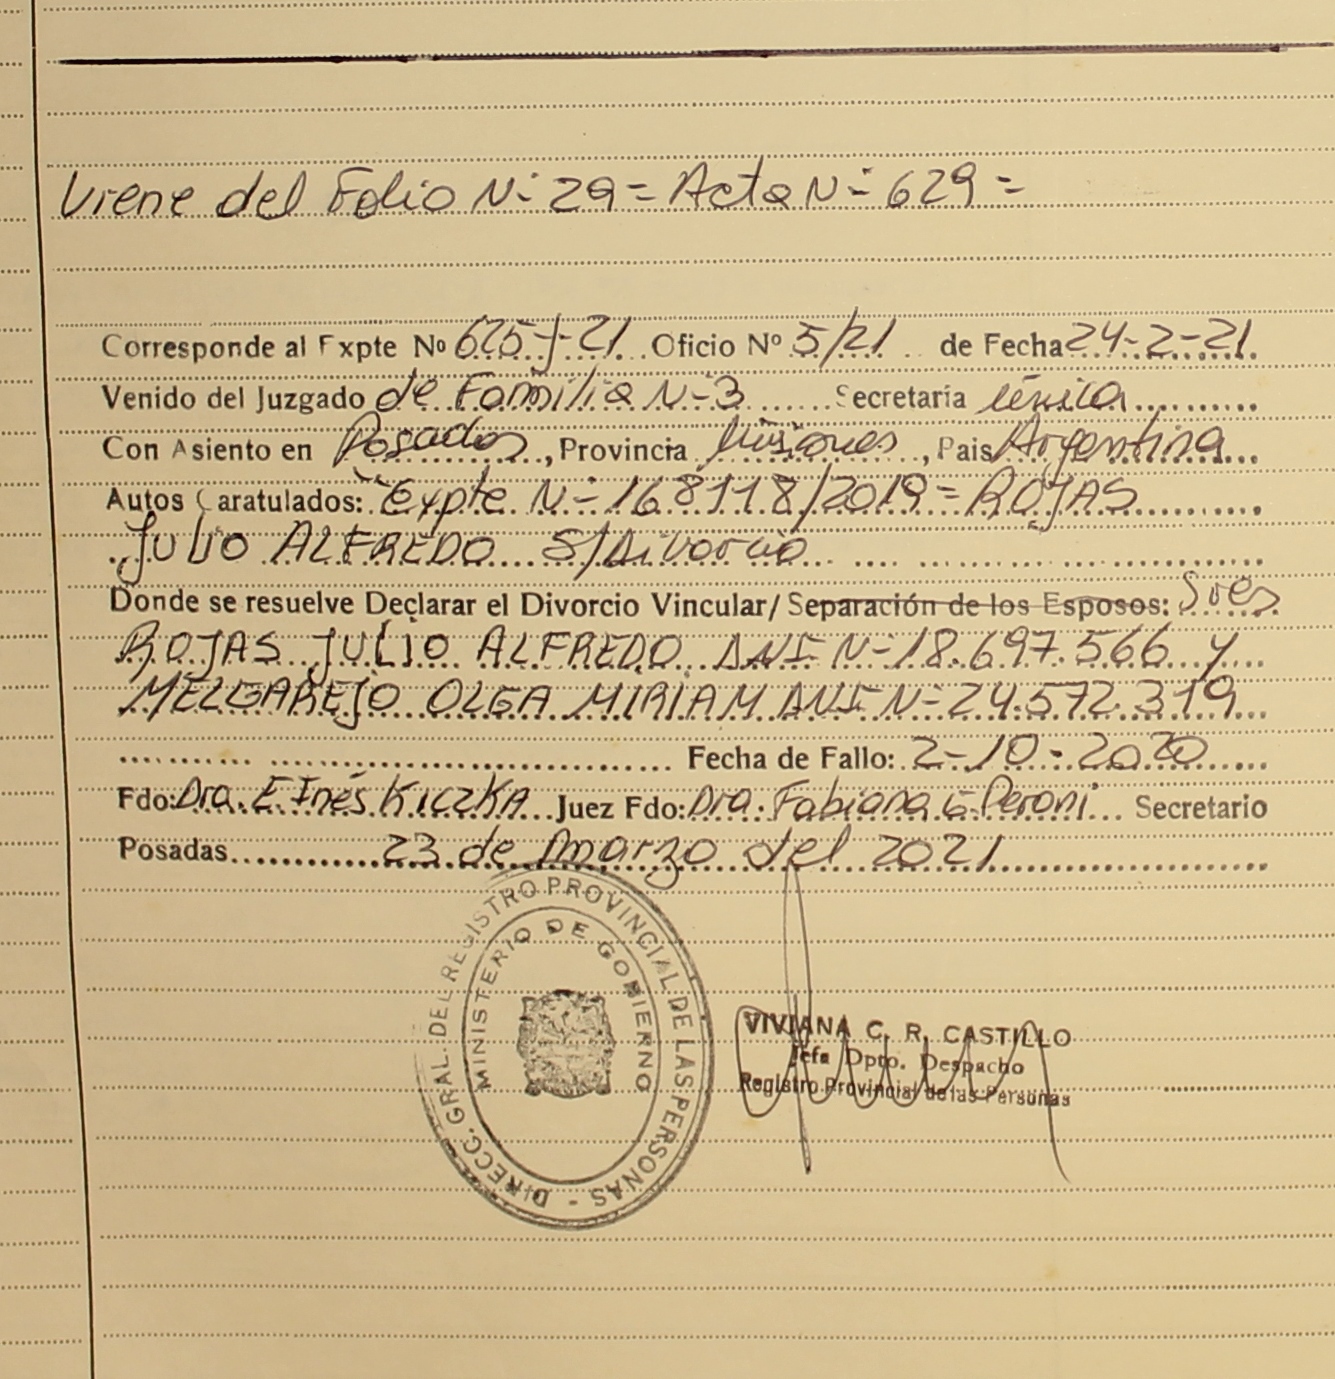 Viene del Folio N- 29 = Acta N- 629 =
Corresponde al Expte Nº 625-J-21 Oficio Nº 5/21 de Fecha 24-2-21
Venido del Juzgado de Familia N-3 Secretaria única
Con Asiento en Posadas, Provincia Misiones, Pais Argentina
Autos Caratulados: Expte N- 168118/2019 = ROJAS
JULIO ALFREDO S/Divorcio
Donde se resuelve Declarar el Divorcio Vincular/ Separación de los Esposos: Sres
ROJAS JULIO ALFREDO DNI N- 18.697.566 y
MELGAREJO OLGA MIRIAM DNI N- 24.572.319
Fecha de Fallo: 2-10-2020
Fdo: Dra. E Inés KICZKA Juez Fdo: Dra. Fabiana G Peroni Secretario
Posadas 23 de marzo del 2021
DIRECC. GRAL. DEL REGISTRO PROVINCIAL DE LAS PERSONAS -
MINISTERIO DE GOBIERNO
VIVIANA C. R. CASTILLO
Jefa Dpto. Despacho
Registro Provincial de las Personas